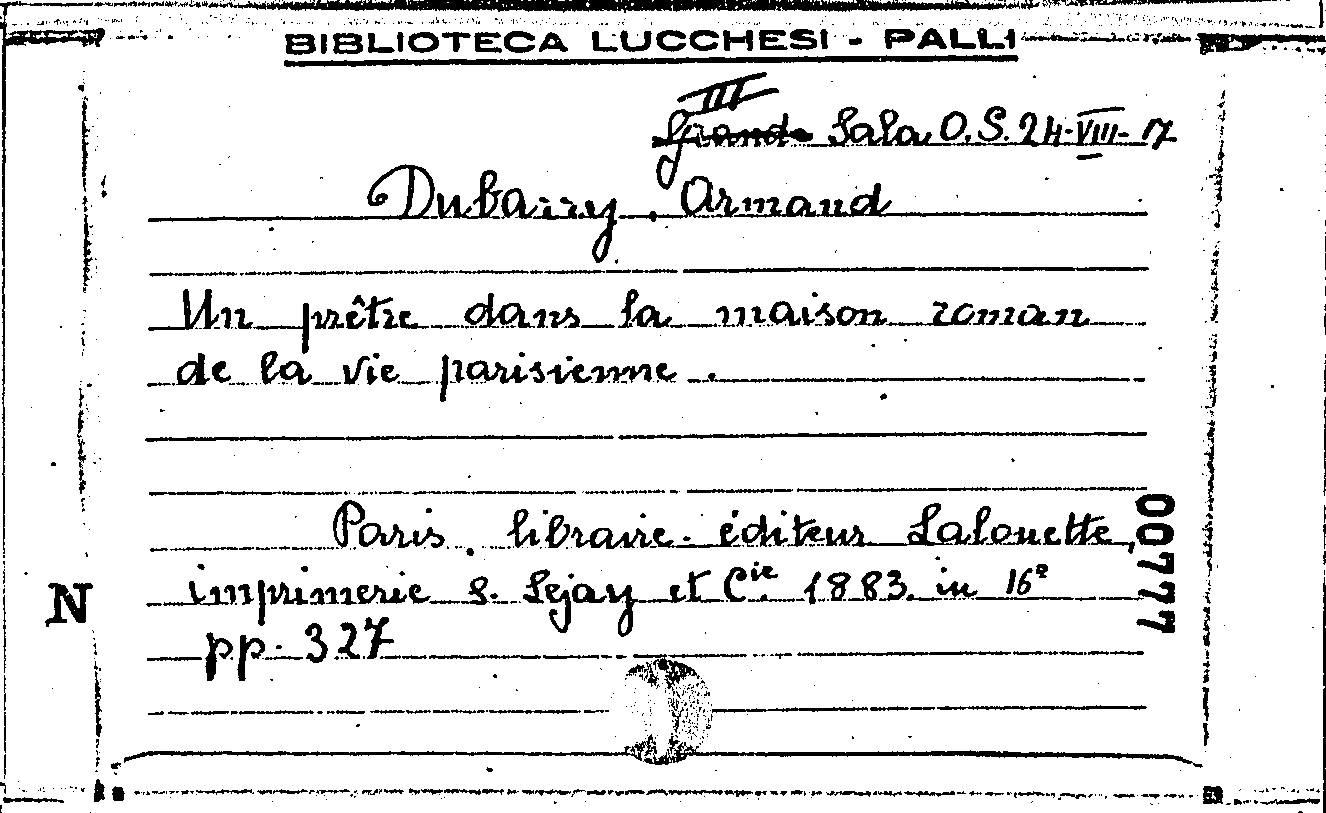 BIBLIOTECA LUCCHESI - PALLI
III
Grande Sala O.S. 24-VIII-17
Dubarry, Armand
Un prêtre dans la maison roman
de la vie parisienne.
Paris, libraire-éditeur Lalouette,
imprimerie S. Lejay et Cie. 1883. in 16º
pp. 327
00777
N